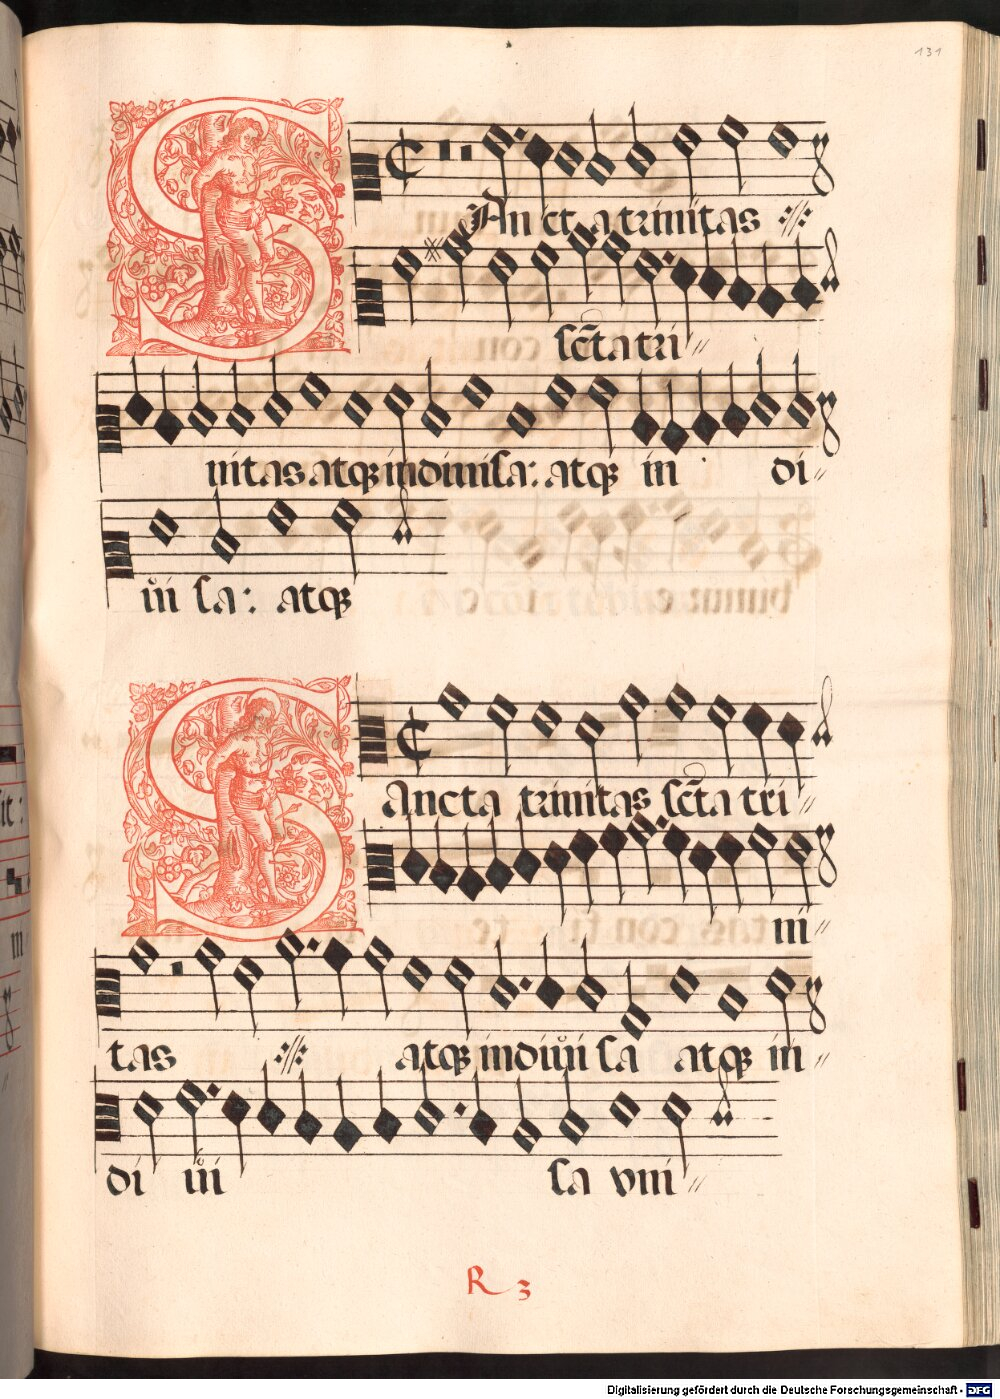 131
SAncta trinitas
sc̄ta tri
nitas atqꝫ indiuisa: atqꝫ in di
ui sa: atqꝫ
Sancta trinitas sc̄ta tri
ni
tas atqꝫ indiui sa atqꝫ in
di ui sa vni
R 3
Digitalisierung gefördert durch die Deutsche Forschungsgemeinschaft - DFG